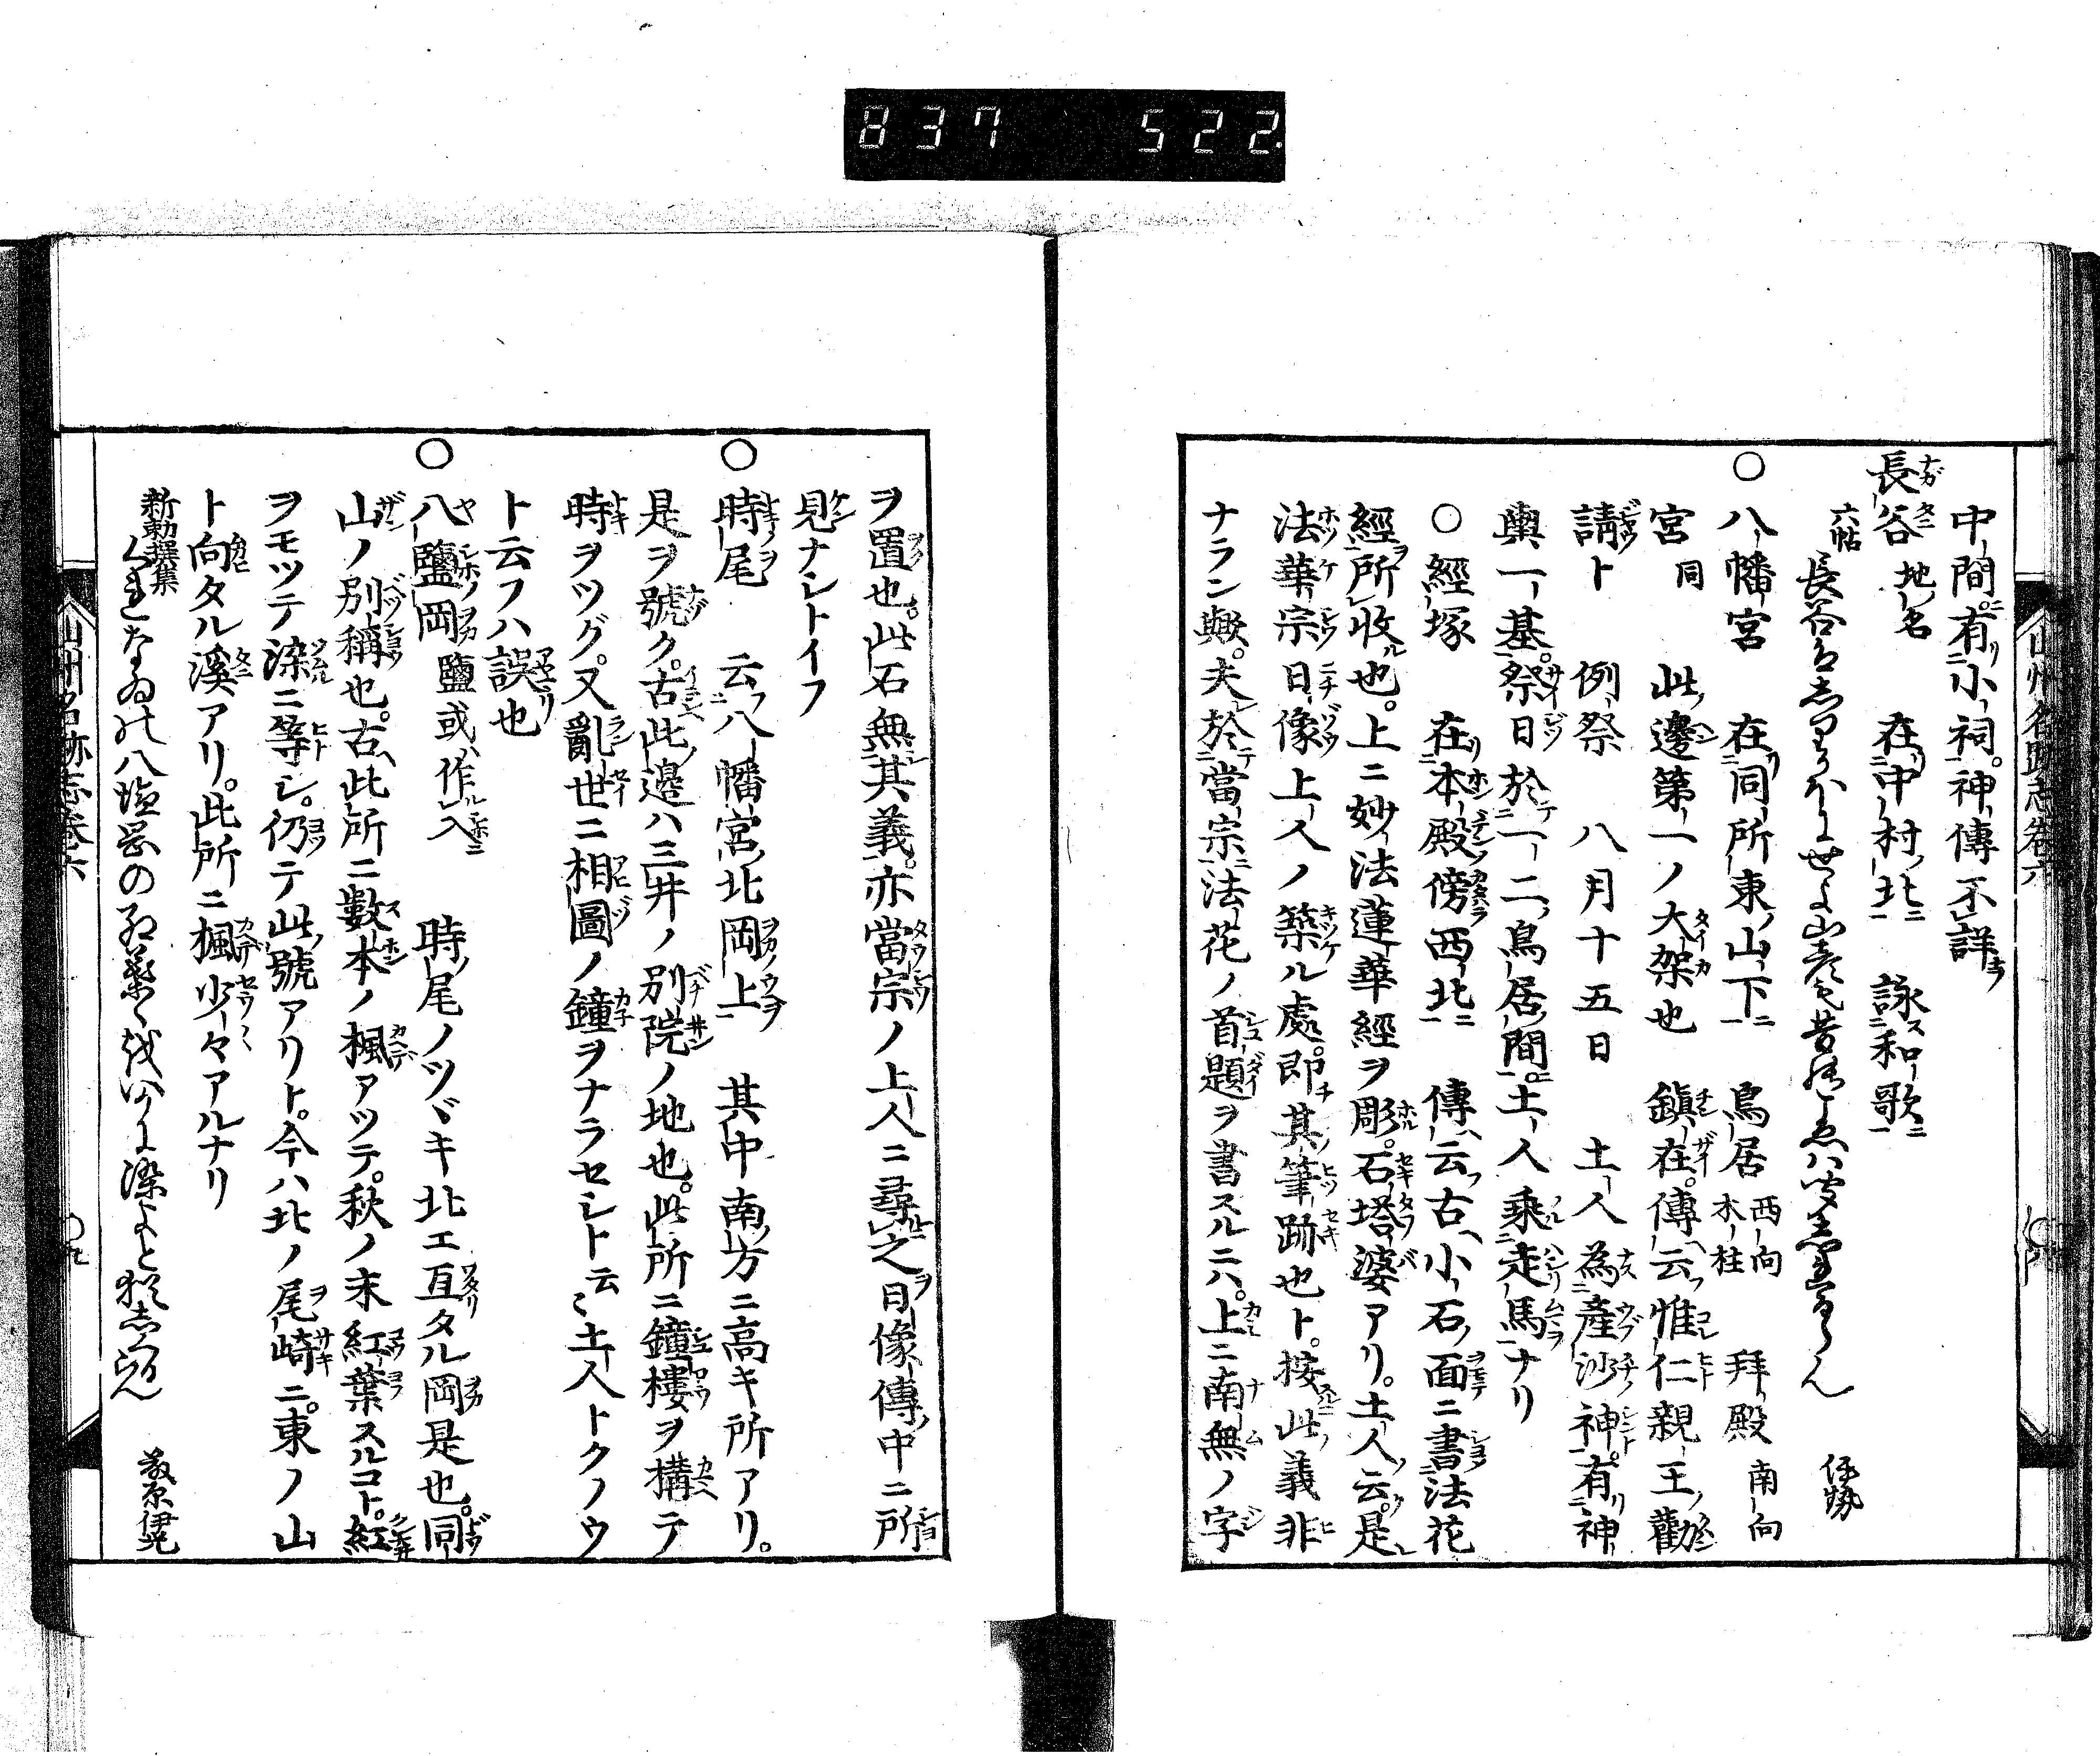 837 522
山州名跡志巻六
中間有小祠。神傳不詳
長谷 地名 在中村北 詠和歌
六帖
伊勢
○八幡宮 在同所東山下 鳥居 西向 木柱 拜殿 南向
宮 同 此邊第一ノ大架也 鎮在。傳云惟仁親王勸
請ト 例祭 八月十五日 土人為產沙神。有神
輿一基。祭日於一二鳥居間。土人乗走馬ナリ
○經塚 在本殿傍西北 傳云古小石面ニ書法花
經所收也。上ニ妙法蓮華經ヲ彫。石塔婆アリ。土人云。是
法華宗日像上人ノ築ル處。即其筆跡也ト。按此義非
ナラン歟。夫於當宗法花ノ首題ヲ書スルニハ。上ニ南無ノ字
ヲ置也。此石無其義。亦當宗ノ上人ニ尋之日像傳中ニ所
見ナシトイフ
○時尾 云八幡宮北岡上 其中南方ニ高キ所アリ。
是ヲ號ク。古此邊ハ三井ノ別院ノ地也。此所ニ鐘樓ヲ構テ
時ヲツグ。又亂世ニ相圖ノ鐘ヲナラセシト云々土人トクノウ
ト云フハ誤也
○八鹽岡 鹽或作入 時尾ノツヾキ北エ亙タル岡是也。同
山ノ別稱也。古此所ニ數本ノ楓アツテ。秋ノ末紅葉スルコト。紅
ヲモツテ染ニ等シ。仍テ此號アリト。今ハ北ノ尾崎ニ。東ノ山
ト向タル溪アリ。此所ニ楓少々アルナリ
新勅撰集
くれなゐの八塩岡の紅葉
藤原伊光
山州名跡志巻六